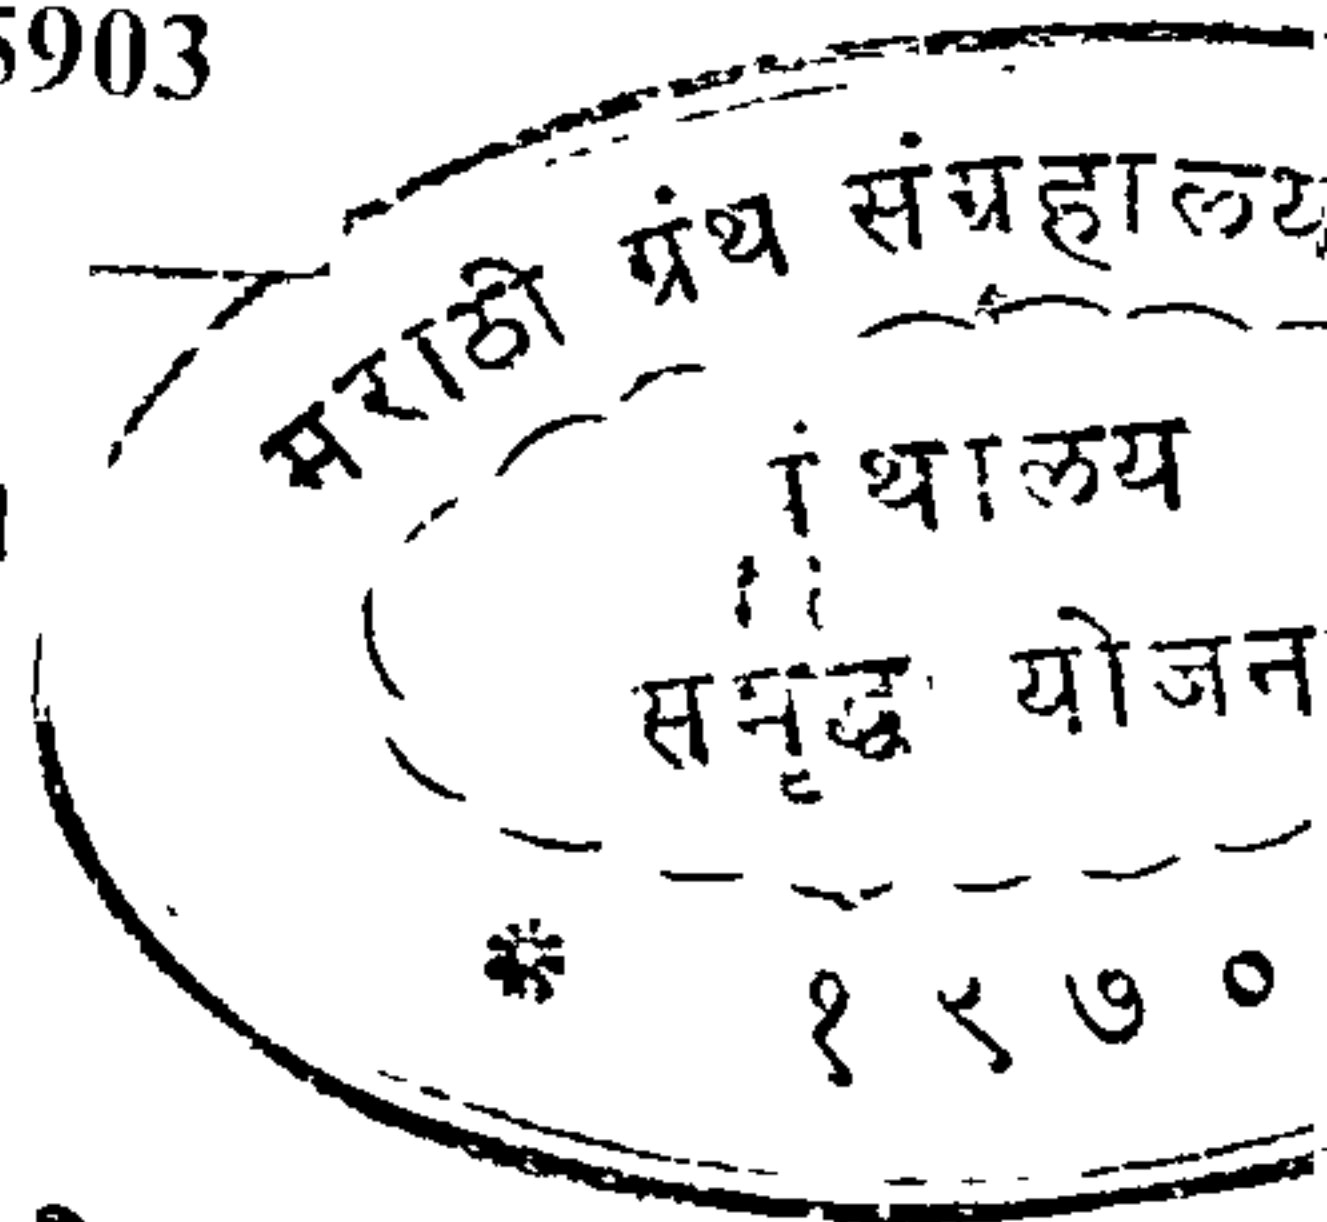 5903
मराठी ग्रंथ संग्रहालय
ग्रंथालय
समृद्ध योजन
१९७०